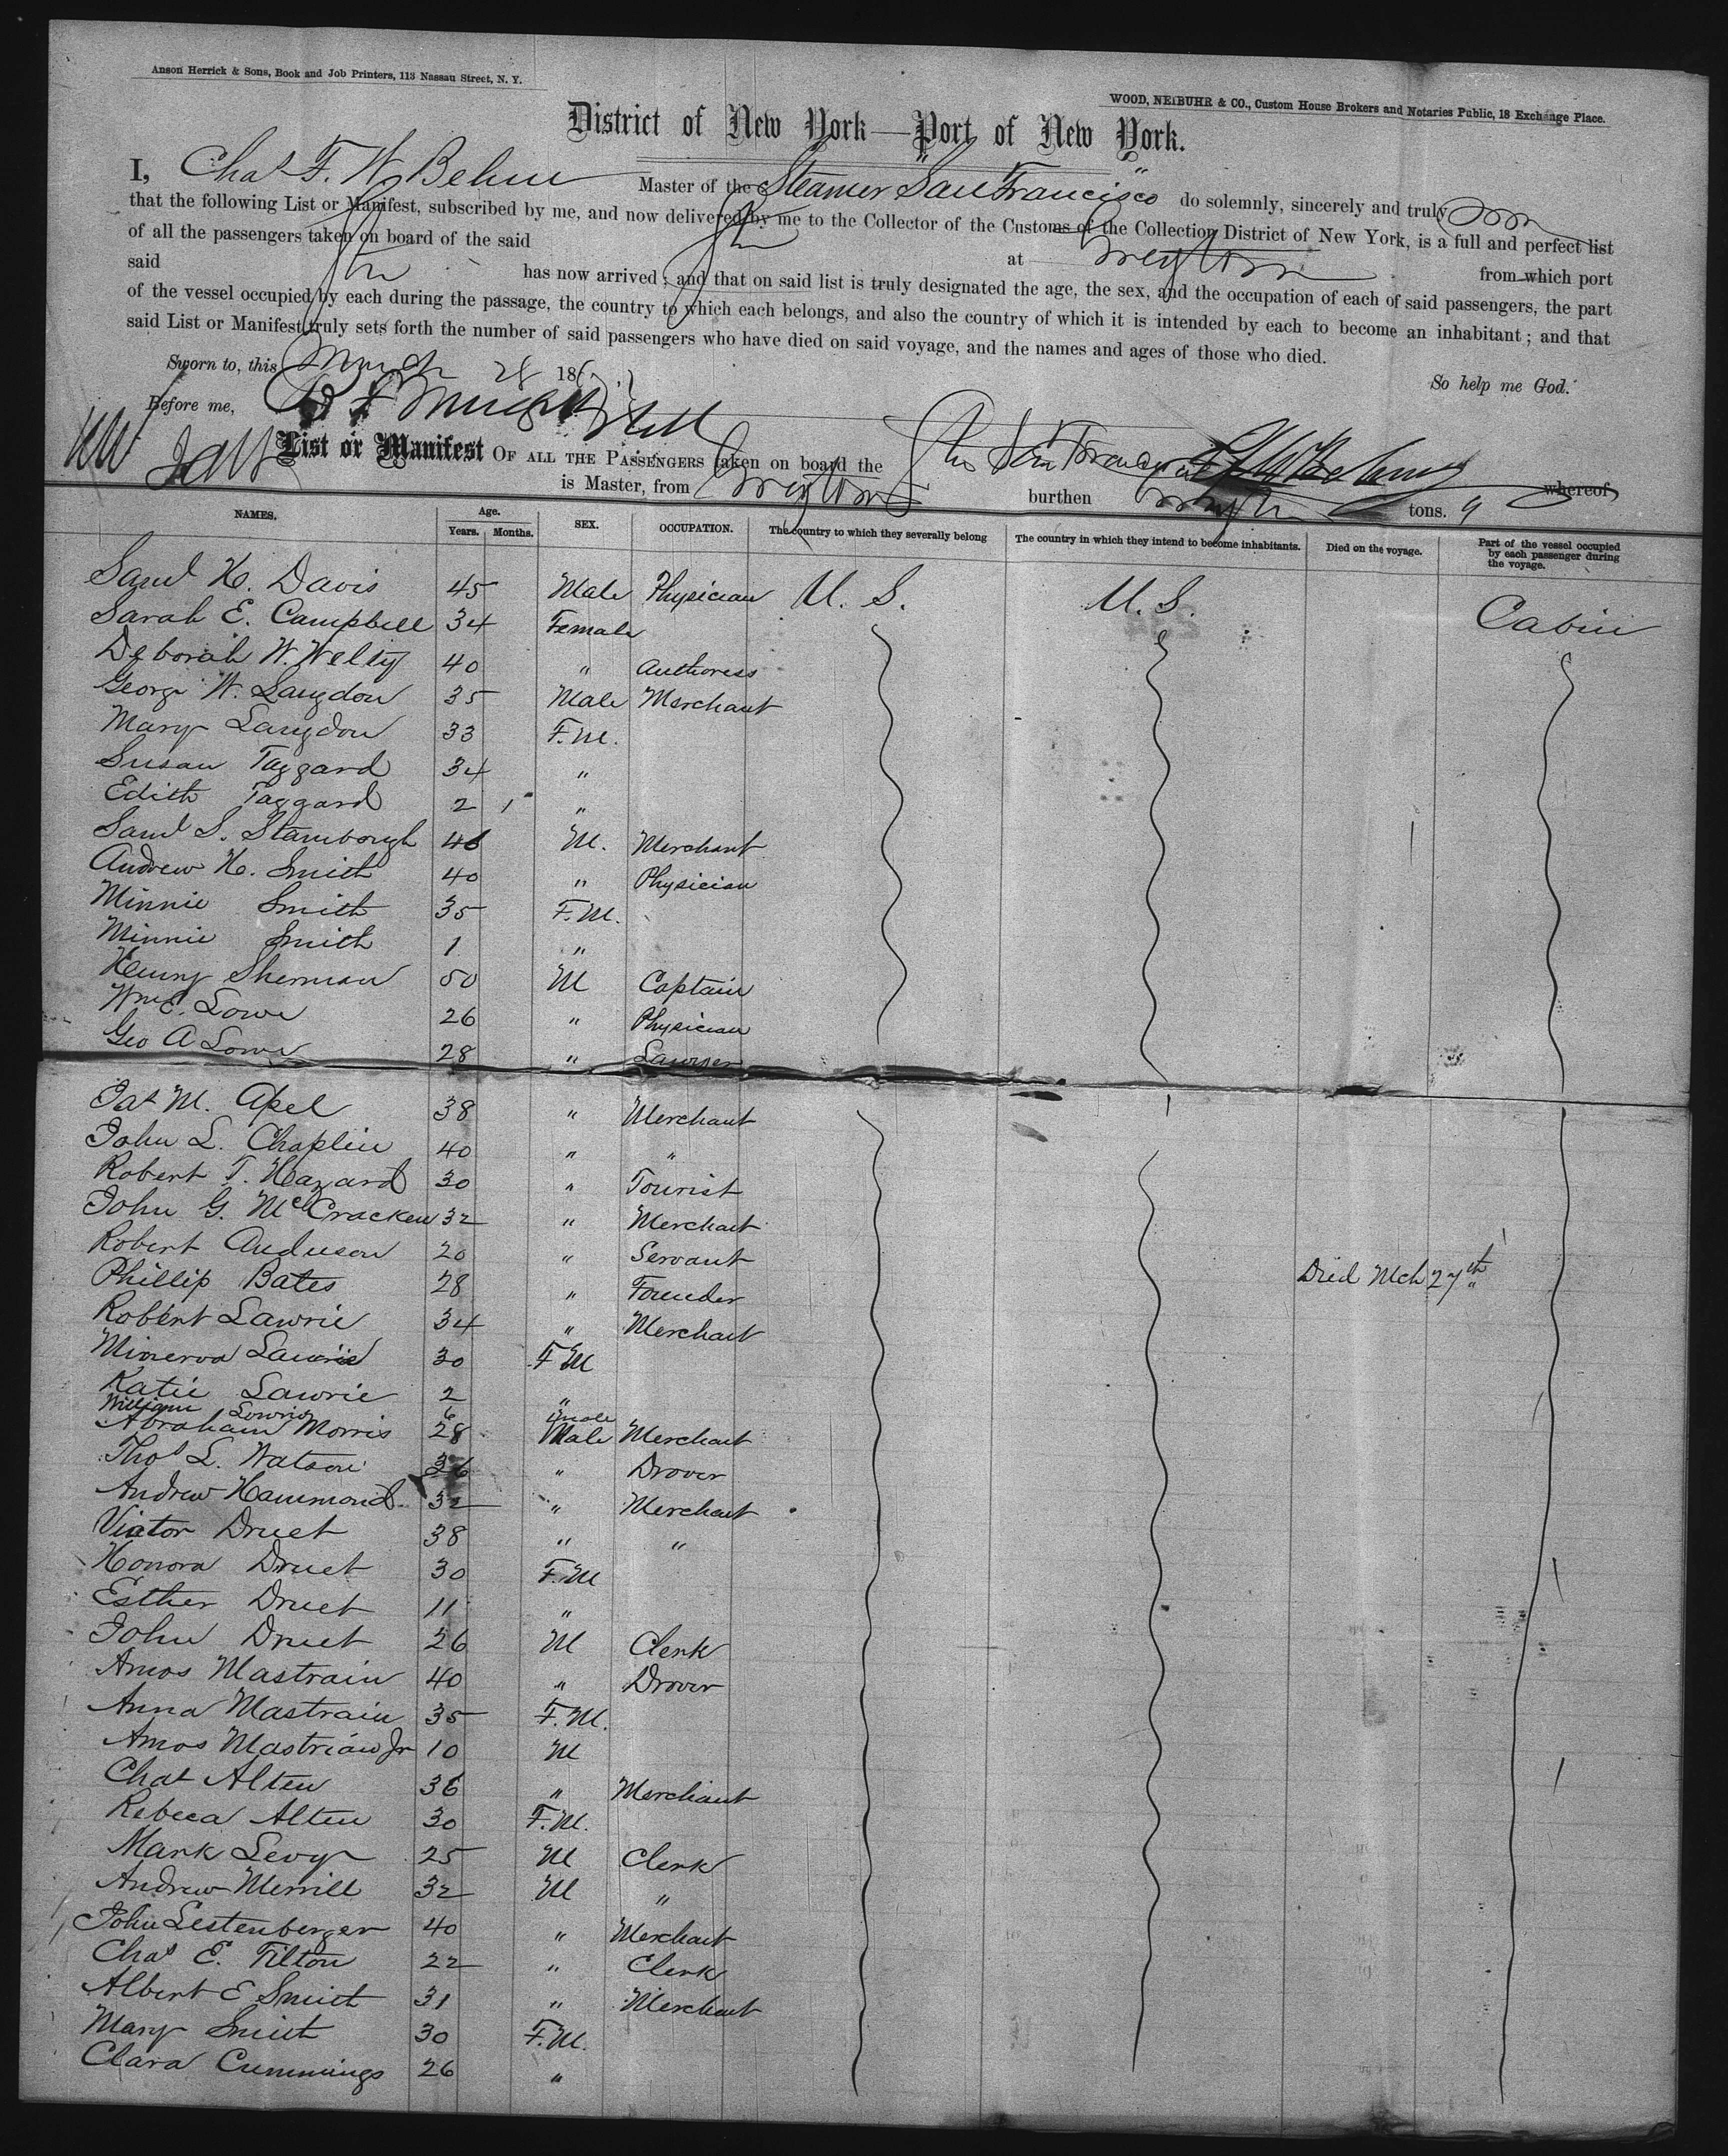 Anson Herrick & Sons, Book and Job Printers, 113 Nassau Street, N. Y.
WOOD, NEIBUHR & CO., Custom House Brokers and Notaries Public, 18 Exchange Place.
District of New York—Port of New York.
I, Chas F. W. Behm Master of the Steamer "San Francisco" do solemnly, sincerely and truly
that the following List or Manifest, subscribed by me, and now delivered by me to the Collector of the Customs of the Collection District of New York, is a full and perfect list
of all the passengers taken on board of the said at Greytown from which port
said has now arrived; and that on said list is truly designated the age, the sex, and the occupation of each of said passengers, the part
of the vessel occupied by each during the passage, the country to which each belongs, and also the country of which it is intended by each to become an inhabitant; and that
said List or Manifest truly sets forth the number of said passengers who have died on said voyage, and the names and ages of those who died.
So help me God.
Sworn to, this March 28 186
Before me,
List or Manifest OF ALL THE PASSENGERS taken on board the San Francisco whereof
is Master, from Greytown burthen tons.
NAMES. Age. Years. Months. SEX. OCCUPATION. The country to which they severally belong The country in which they intend to become inhabitants. Died on the voyage. Part of the vessel occupied by each passenger during the voyage.
Saml H. Davis 45 Male Physician U. S. U. S. Cabin
Sarah E. Campbell 34 Female
Deborah W. Welty 40 " Authoress
George W. Langdon 35 Male Merchant
Mary Langdon 33 F.M.
Susan Taggard 34 "
Edith Taggard 2 1 "
Saml S. Stambough 46 M. Merchant
Andrew H. Smith 40 " Physician
Minnie Smith 35 F.M.
Minnie Smith 1 "
Henry Sherman 50 M Captain
Wm E. Lowe 26 " Physician
Geo A Lowe 28 " Lawyer
Jas M. Apel 38 " Merchant
John L. Chaplin 40 " "
Robert T. Hazard 30 " Tourist
John G. McCracken 32 " Merchant
Robert Anderson 20 " Servant
Phillip Bates 28 " Founder Died Mch 27th
Robert Lawrie 34 " Merchant
Minerva Lawrie 30 F M
Katie Lawrie 2 "
William Lowrie 6 male
Abraham Morris 28 Male Merchant
Thos L. Watson 36 " Drover
Andrew Hammond 32 " Merchant
Victor Druet 38 " "
Honora Druet 30 F.M
Esther Druet 11 "
John Druet 26 M Clerk
Amos Mastrain 40 " Drover
Anna Mastrain 35 F.M.
Amos Mastrain Jr 10 M
Chas Alten 36 " Merchant
Rebeca Alten 30 F.M.
Mark Levy 25 M Clerk
Andrew Merrill 32 M "
John Lestenberger 40 " Merchant
Chas E. Tilton 22 " Clerk
Albert E Smith 31 " Merchant
Mary Smith 30 F.M.
Clara Cummings 26 "